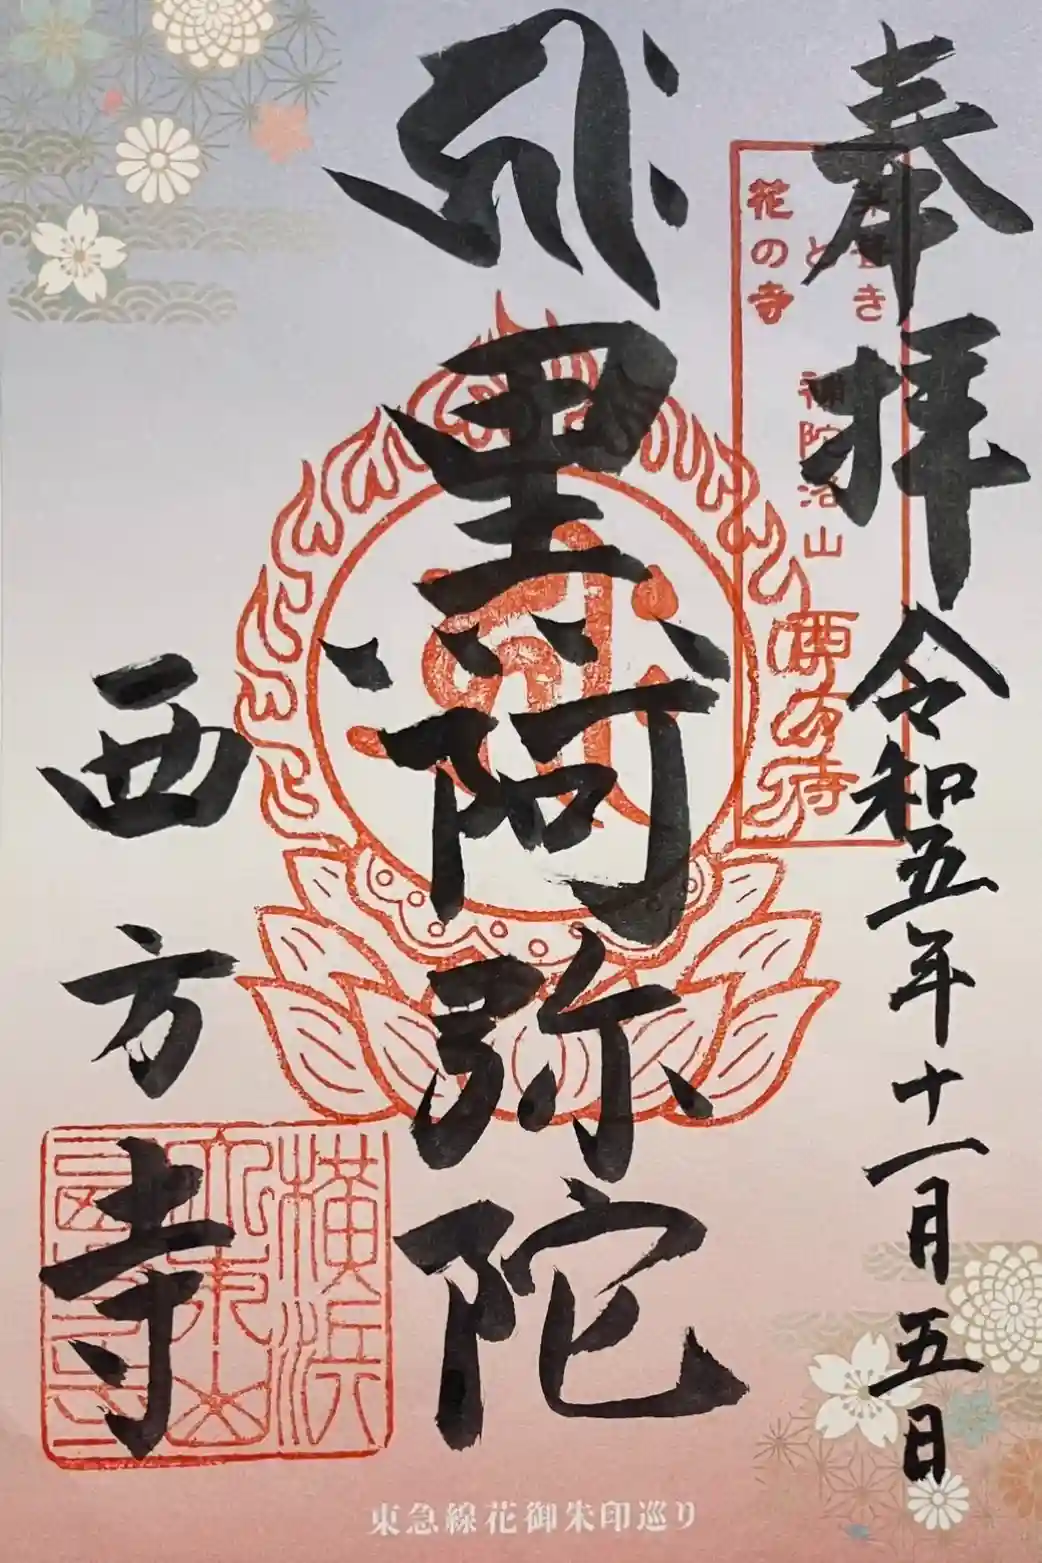 奉拝
令和五年十一月五日
き
と
花の寺
補陀洛山
西方寺
黒阿弥陀
西方寺
横浜
東急線花御朱印巡り